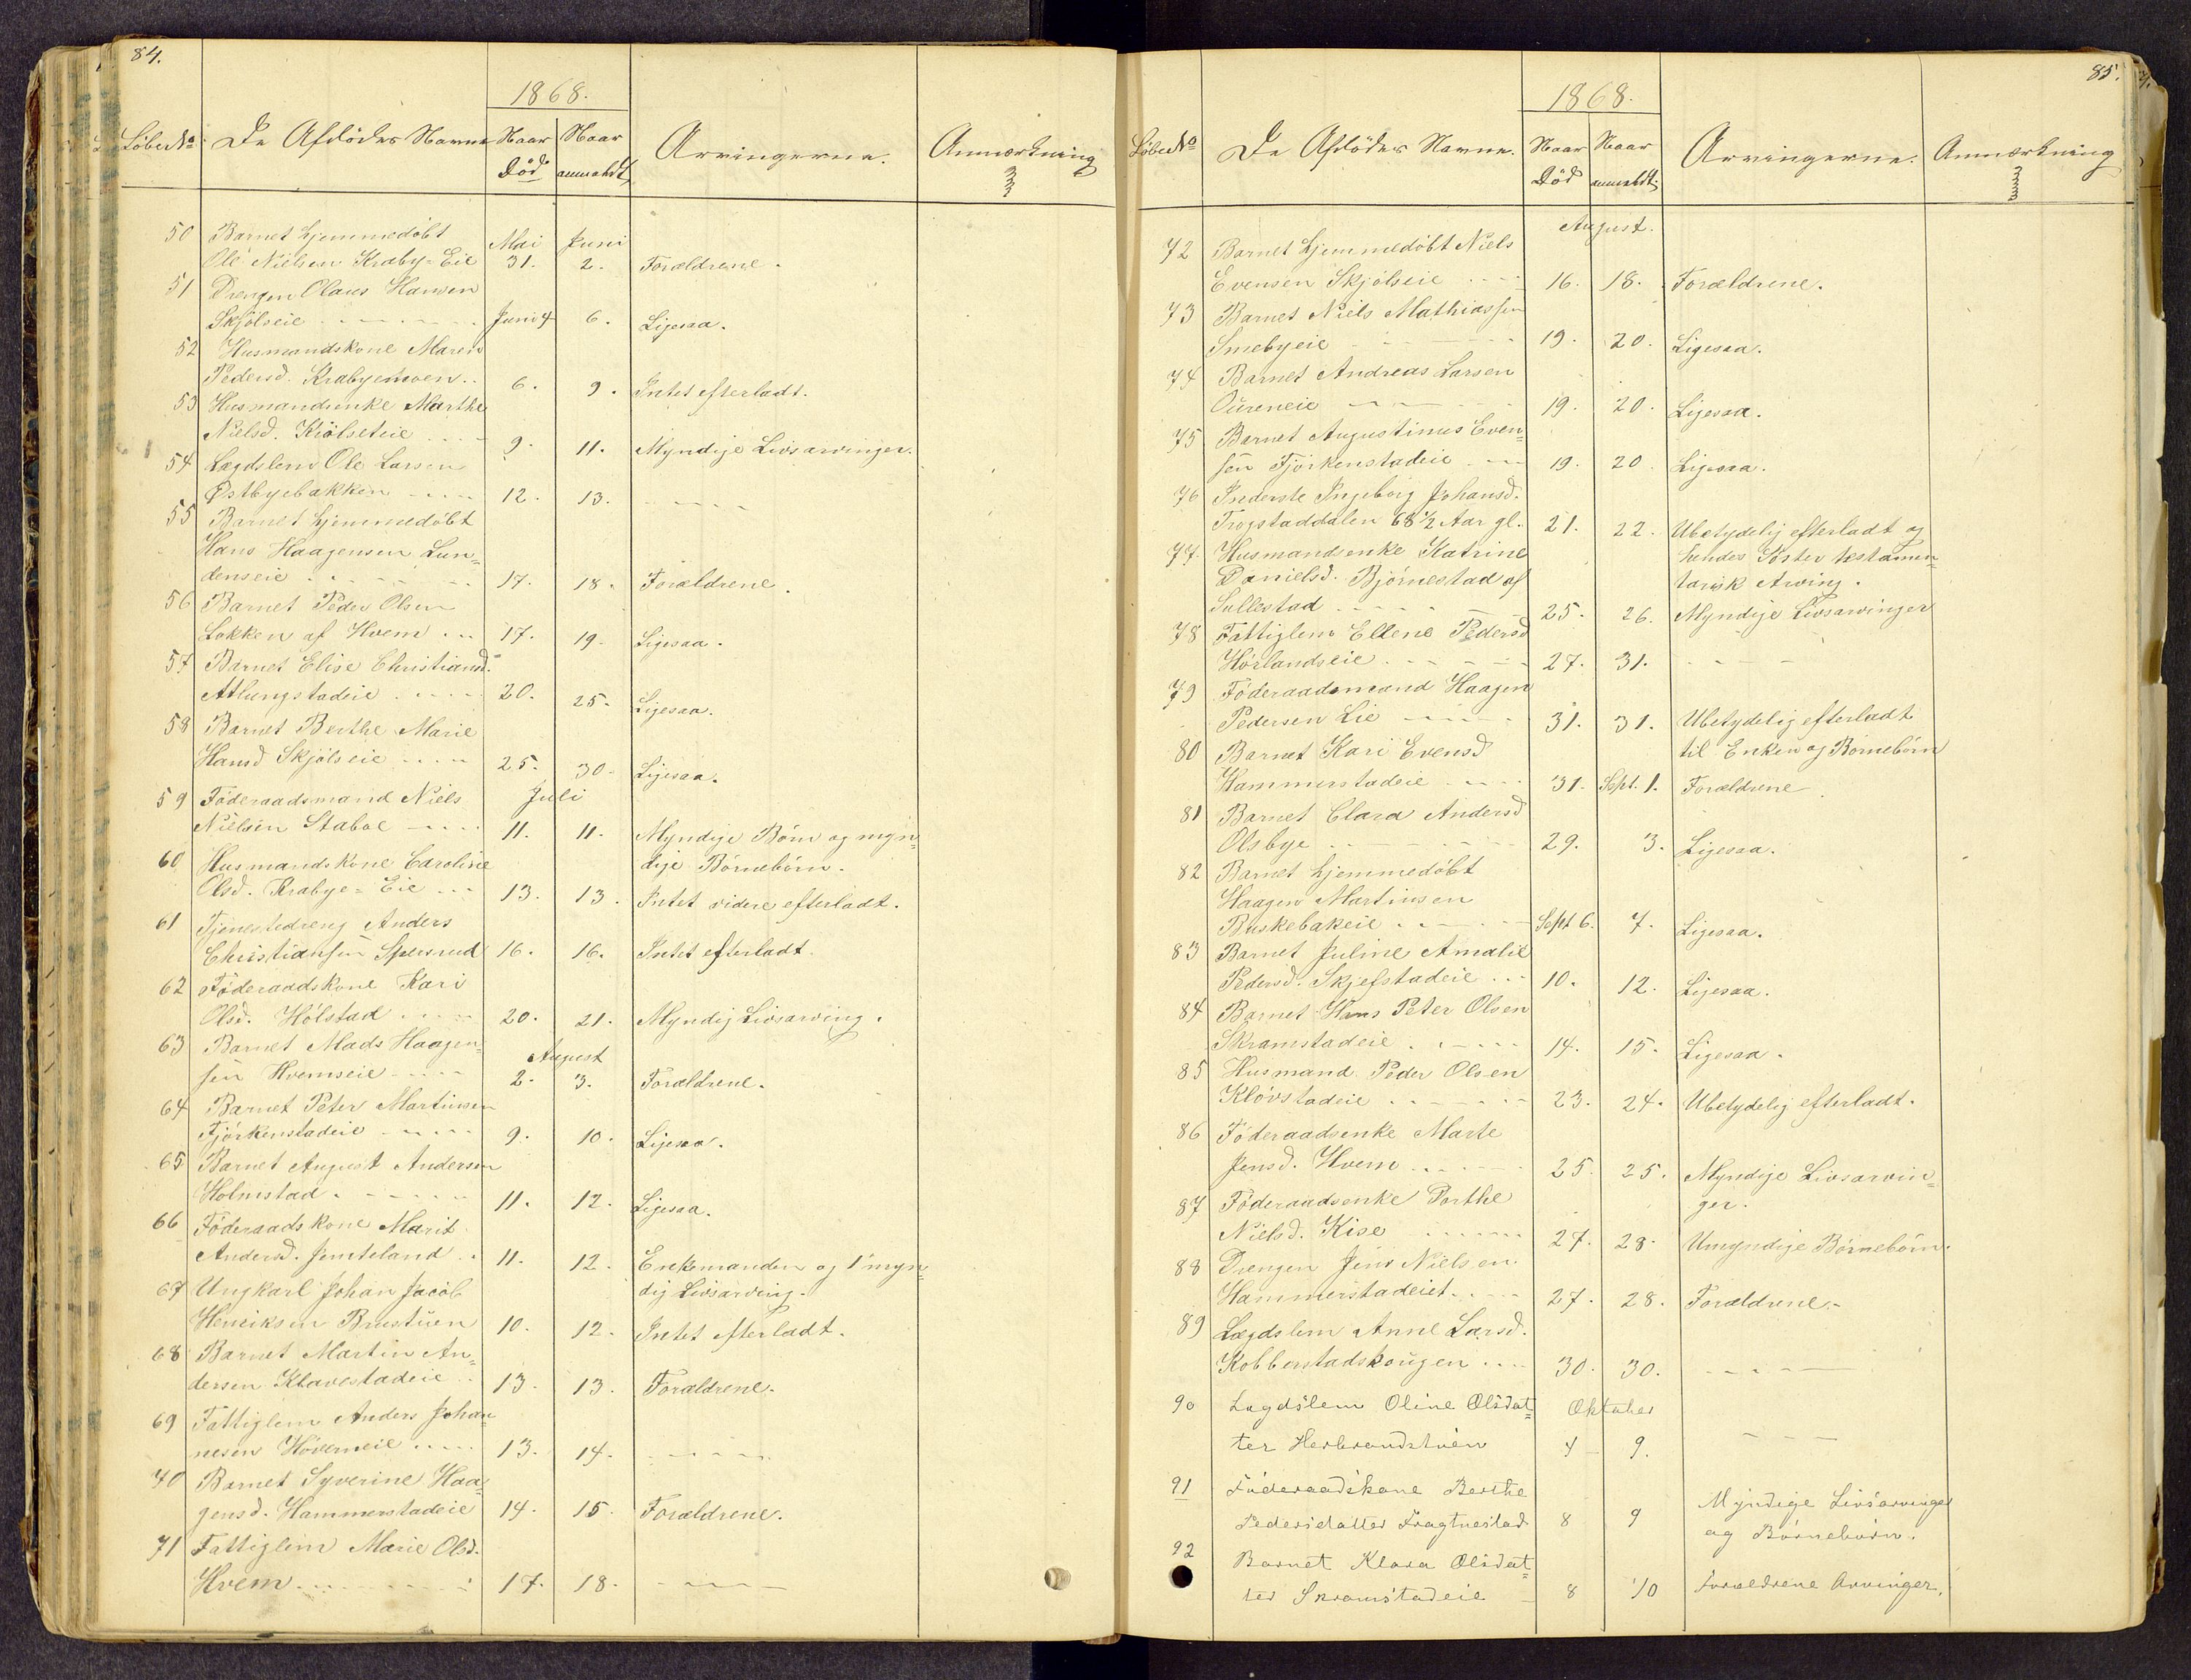 84.
1868.
Löbe No. De Afdödes Navne Naar Död Naar anmeldt Arvingerne. Anmærkning
50 Barnet hjemmedöbt Mai Juni
Ole Nielsen Kraby=Eie 31. 2. Forældrene.
51 Drengen Olaus Hansen
Skjölseie Juni 4 6. Ligesaa.
52 Husmandskone Maren
Pedersd. Krabyemoen.. 6. 9. Intet efterladt.
53 Husmandsenke Marthe
Nielsd. Kiölseteie 9. 11. Myndige Livsarvinger.
54 Lægdslem Ole Larsen
Østbyebakken 12. 13. ----
55 Barnet hjemmedöbt
Hans Haagensen Lun=
denseie 17. 18. Forældrene.
56 Barnet Peder Olsen
Løkken af Hvem ... 17. 19. Ligesaa.
57 Barnet Elise Christiansd.
Atlungstadeie 20. 25. Ligesaa.
58 Barnet Berthe Marie
Hansd Skjölseie 25. 30. Ligesaa.
59 Föderaadsmand Niels Juli
Nielsen Staboe 11. 11. Myndige Börn og myn=
60 Husmandskone Caroline dige Börnebörn.
Olsd. Krabye=Eie ... 13. 13. Intet videre efterladt.
61 Tjenestedreng Anders
Christiansen Spersrud 16. 16. Intet efterladt.
62 Föderaadskone Kari
Olsd. Hölstad 20. 21. Myndig Livsarving.
63 Barnet Mads Haagen= August
sen Hvemseie 2. 3. Forældrene.
64 Barnet Peter Martinsen
Fjörkenstadeie 9. 10. Ligesaa.
65 Barnet August Andersen
Holmstad 11. 12. Ligesaa.
66 Föderaadskone Marit
Andersd. Jemteland .. 11. 12. Enkemanden og 1 myn=
67 Ungkarl Johan Jacob dig Livsarving.
Henriksen Brustuen 10. 12. Intet efterladt.
68 Barnet Martin An=
dersen Klavestadeie .. 13. 13. Forældrene.
69 Fattiglem Anders Johan=
nesen Höverneie 13. 14. ----
70 Barnet Syverine Haa=
gensd. Hammerstadeie 14. 15. Forældrene.
71 Fattiglem Marie Olsd.
Hvem 17. 18. ----
85.
1868.
Löbe No De Afdödes Navne. Naar Död Naar anmeldt. Arvingerne. Anmærkning
August.
72 Barnet hjemmedöbt Niels
Evensen Skjölseie 16. 18. Forældrene.
73 Barnet Niels Mathiassen
Smebyeie 19. 20. Ligesaa.
74 Barnet Andreas Larsen
Oureneie 19. 20. Ligesaa.
75 Barnet Augustinus Even=
sen Fjörkenstadeie 19. 20. Ligesaa.
76 Inderste Ingeborg Johansd.
Trogstaddalen 68 1/2 Aar gl. 21. 22. Ubetydelig efterladt og
77. Husmandsenke Katrine hendes Söster testamen=
Danielsd. Björnestad af tarisk Arving.
Sullestad 25. 26. Myndige Livsarvinger
78 Fattiglem Ellene Pedersd
Hörlandseie 27. 31. ----
79 Föderaadsmand Haagen
Pedersen Lie 31. 31. Ubetydelig efterladt
80 Barnet Kari Evensd til Enken og Börnebörn
Hammerstadeie 31. Sept. 1. Forældrene.
81 Barnet Clara Andersd
Olsbye 29. 3. Ligesaa.
82 Barnet hjemmedöbt
Haagen Martinsen
Buskebakeie Sept 6. 7. Ligesaa.
83 Barnet Juline Amalie
Pedersd. Skjefstadeie ... 10. 12. Ligesaa.
84 Barnet Hans Peter Olsen
Skramstadeie 14. 15. Ligesaa.
85 Husmand Peder Olsen
Klövstadeie 23. 24. Ubetydelig efterladt.
86 Föderaadsenke Marte
Jensd. Hvem 25. 25. Myndige Livsarvin=
87 Föderaadsenke Porthe ger.
Nielsd. Kise 27. 28. Umyndige Börnebörn.
88 Drengen Jens Nielsen
Hammerstadeiet 27. 28. Forældrene.
89 Lægdslem Anne Larsd.
Kobberstadskougen 30. 30. ----
90 Lægdslem Oline Olsdat= Oktober
ter Herbrandstuen 4 9. ---
91 Föderaadskone Berthe Myndige Livsarvinger
Pedersdatter Fragtnestad 8 9 og Börnebörn.
92 Barnet Klara Olsdat=
ter Skramstadeie 8 10 Forældrene Arvinger.